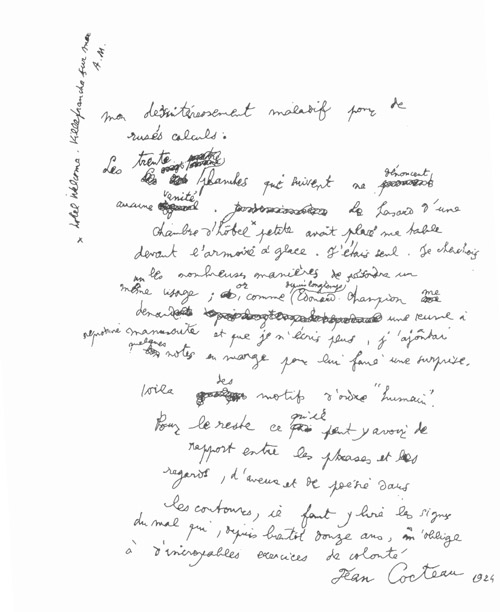 mon désintéressement maladif pour de
rusés calculs.
Les trente
planches qui suivent ne dénoncent
aucune vanité. Le hasard d'une
chambre d'hôtel × petite avait placé ma table
devant l'armoire à glace. J'étais seul. Je cherchais
les nombreuses manières de résoudre un
même visage ; or, comme Edouard Champion me
une œuvre à
reproduire manuscrite et que je n'écris plus, j'ajoutai
quelques notes en marge pour lui faire une surprise.
Voilà des motifs d'ordre "humain".
Pour le reste ce qu'il peut y avoir de
rapport entre les phrases et les
regards, d'aveux et de poésie dans
les contours, il faut y lire les signes
du mal qui, depuis bientôt douze ans, m'oblige
à d'incroyables exercices de volonté
Jean Cocteau 1924
× Hotel Welcome. Villefranche sur mer
A.M.